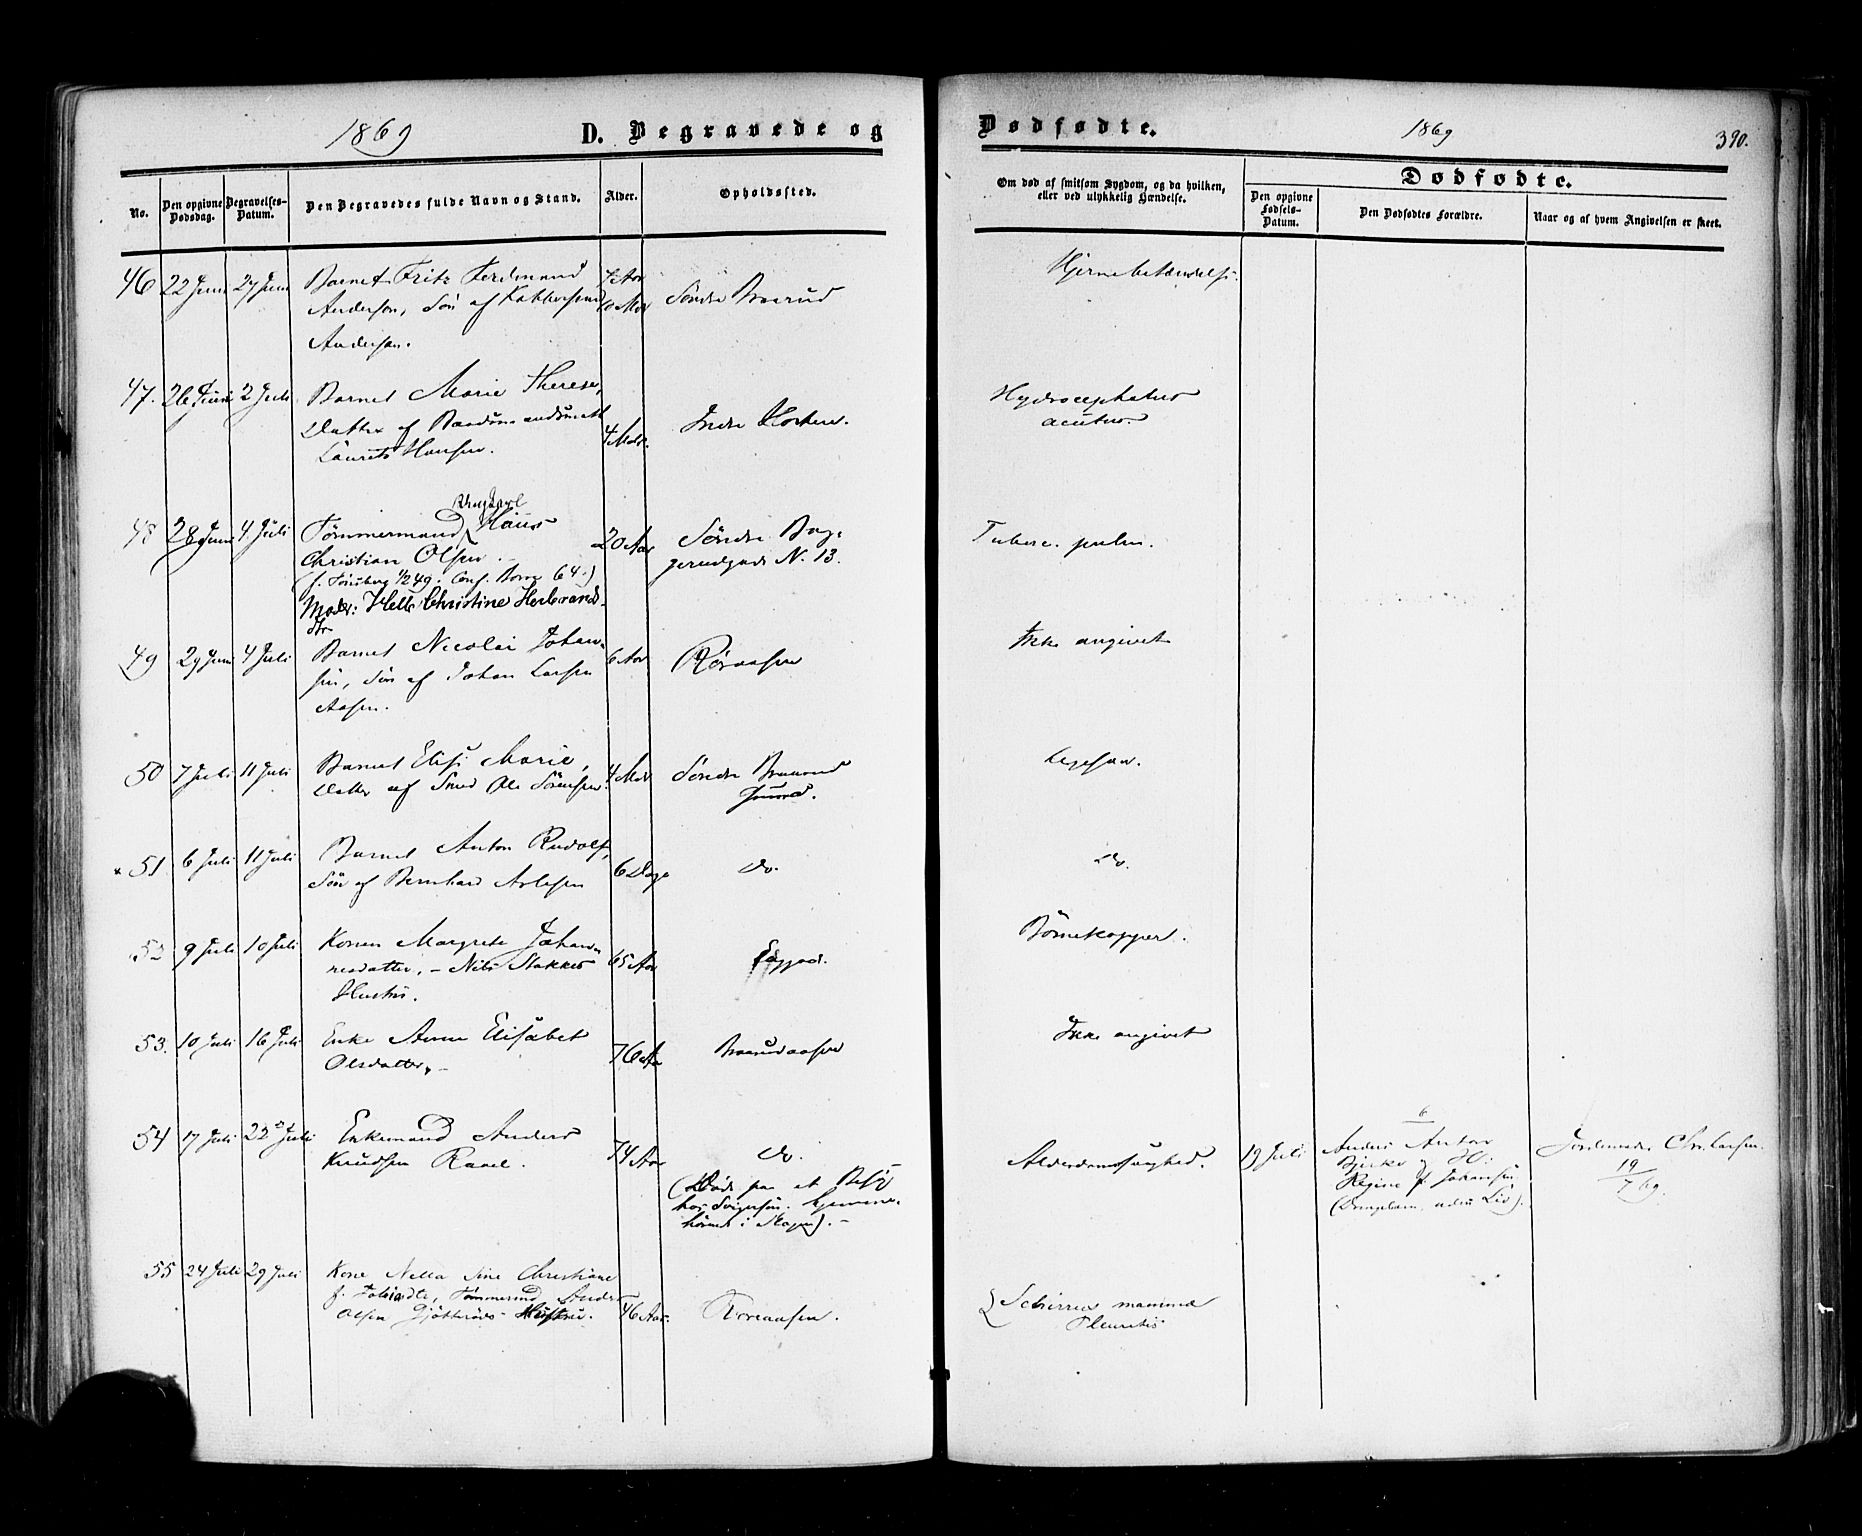 1869
D. Begravede og
Dødfødte.
1869
390.
No.
Den opgivne Dødsdag.
Begravelses-Datum.
Den Begravedes fulde Navn og Stand.
Alder.
Opholdssted.
Om død af smitsom Sygdom, og da hvilken,
eller ved ulykkelig Hændelse.
Dødfødte.
Den opgivne Fødsels-Datum.
Den Dødfødtes Forældre.
Naar og af hvem Angivelsen er skeet.
46 22 Juni 27 Juni Barnet Fritz Ferdinand
Andersen, Søn af
Andersen.
Søndre Braarud
Hjernebetændelse.
47. 26 Juni 2 Juli Barnet Marie Therese,
Datter af
Laurits Hansen.
4 Mdr.
Indre Horten.
Hydrocephalus
acutus.
48 28 Juni 4 Juli Ungkarl
Tømmermand Hans
Christian Olsen.
(f. Tønsberg 1/2 49. Conf. Borre 64.)
Moder: Helle Christine Herbrands-
dtr
20 Aar
Søndre Bag-
gerudgade N. 13.
Tuberc. pulm.
49 29 Juni 4 Juli Barnet Nicolai Johan-
sen, Søn af Johan Larsen
Aasen.
6 Aar
Røraasen
Ikke angivet
50 7 Juli 11 Juli Barnet Elise Marie,
Datter af Smed Ole Sørensen.
4 Mdr
Søndre Braarud
Grund.
Ligesaa.
51 6 Juli 11 Juli Barnet Anton Rudolf,
Søn af Bernhard
6 Dage
do.
do.
52 9 Juli 10 Juli Konen Margrete Johan-
nesdatter, - Nils Stokkes
Hustru.
65 Aar
Børnekopper.
53. 10 Juli 16 Juli Enke Anne Elisabet
Olsdatter. -
76 Aar
Braarudaasen
Ikke angivet
54 17 Juli 22 Juli Enkemand Anders
Knudsen
74 Aar
do.
(Døde paa et Besøg
hos Svigersøn. hjemme-
hørende i Skogen). -
Alderdomssvaghed.
19 Juli
6
Anders Anton
Bjerke og H:
Regine f. Johansen
(Drengebarn, uden Liv).
Jordemoder Chr. Larsen.
19/7 69.
55 24 Juli 29 Juli Kone Nella Sine Christiane
f. Tobiasdtr, Tømmermd Anders
Olsen Hustru.
46 Aar.
Røreaasen.
Schirrus mammæ
Pleuritis